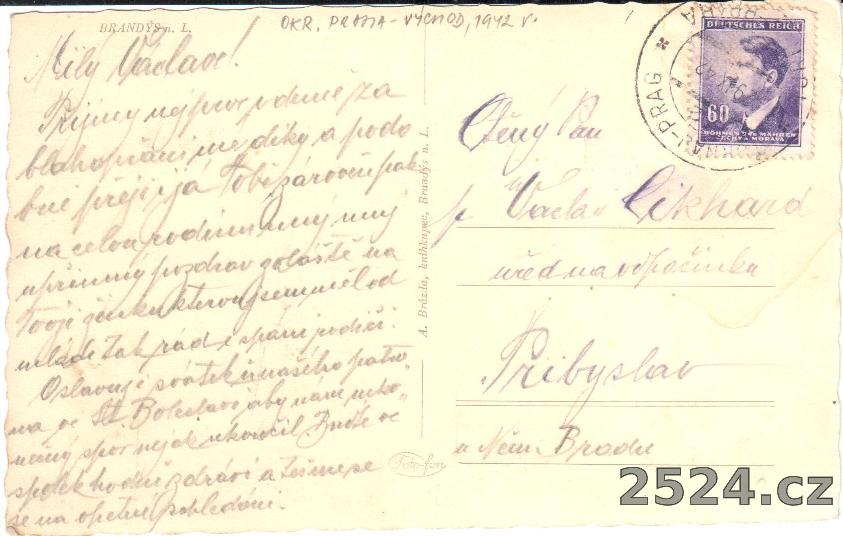 BRANDÝS n. L.
OKR. PRAHA - VÝCHOD, 1942 V.
Milý Václave!
Přijmy nejprve za
blahopřání mé díky a podo
bné přeji já Tobě zároveň pak
na celou rodinu můj
upřímný pozdrav zvláště na
Tvoji ženku kterou jsem měl od
mládí tak rád i spani rodiči.
Oslavuje svátek našeho patro
na ve St. Boleslavi aby nám
spor nejak ukončil Buďte ve
spolek hodně zdrávi a těšme se
se na opětné shledání.
A. Brázda, knihkupec, Brandýs n. L.
Foto-fon
DEUTSCHES REICH
60
BÖHMEN UND MÄHREN
ČECHY A MORAVA
PRAG
PRAHA
Ctěný Pan
p. Václav Eikhard
úřed na odpočinku
Přibyslav
u Něm. Brodu
2524.cz